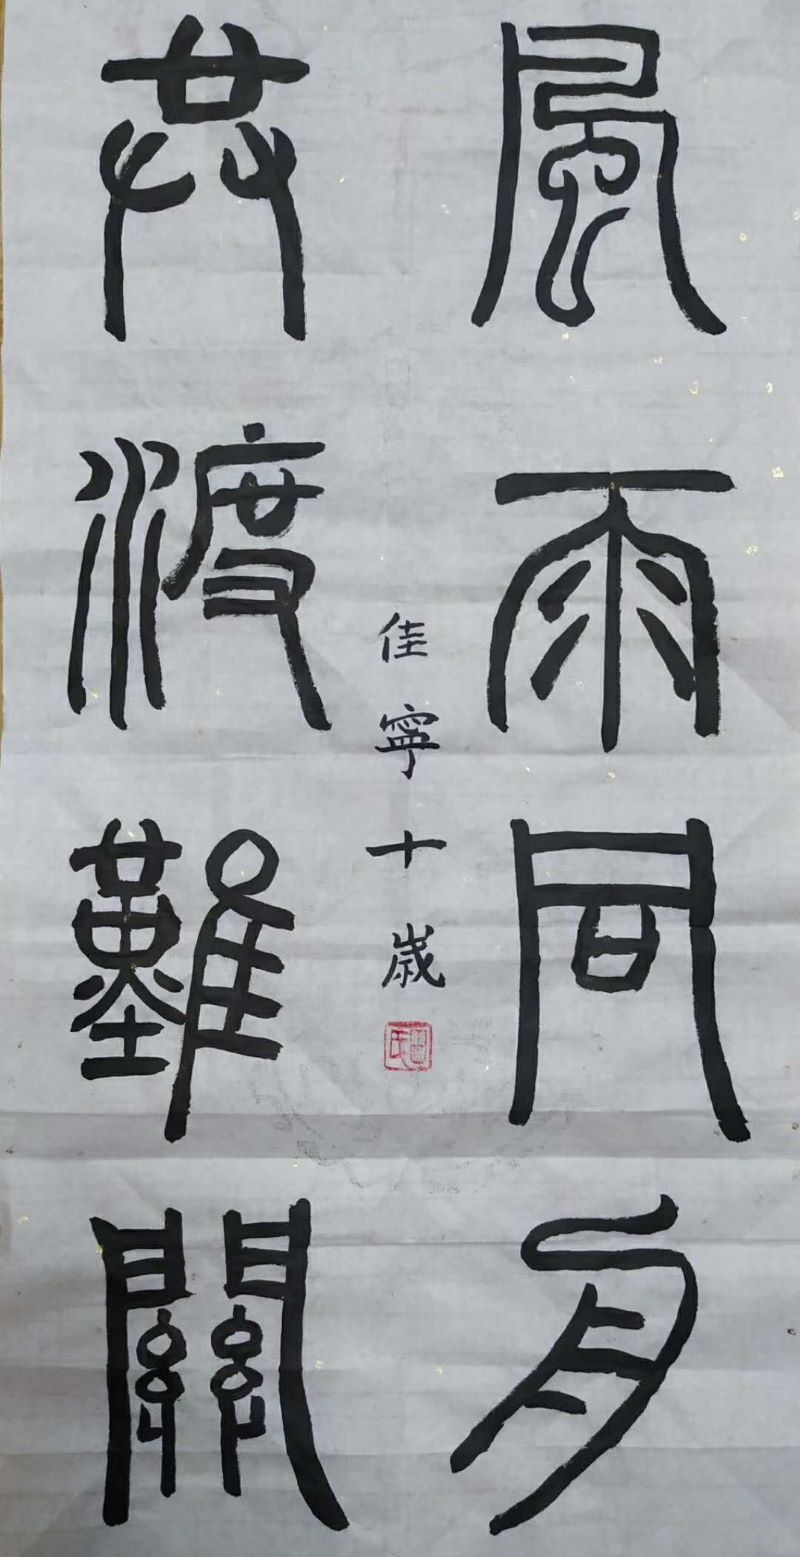 風雨同舟
共渡難關
佳寧十嵗